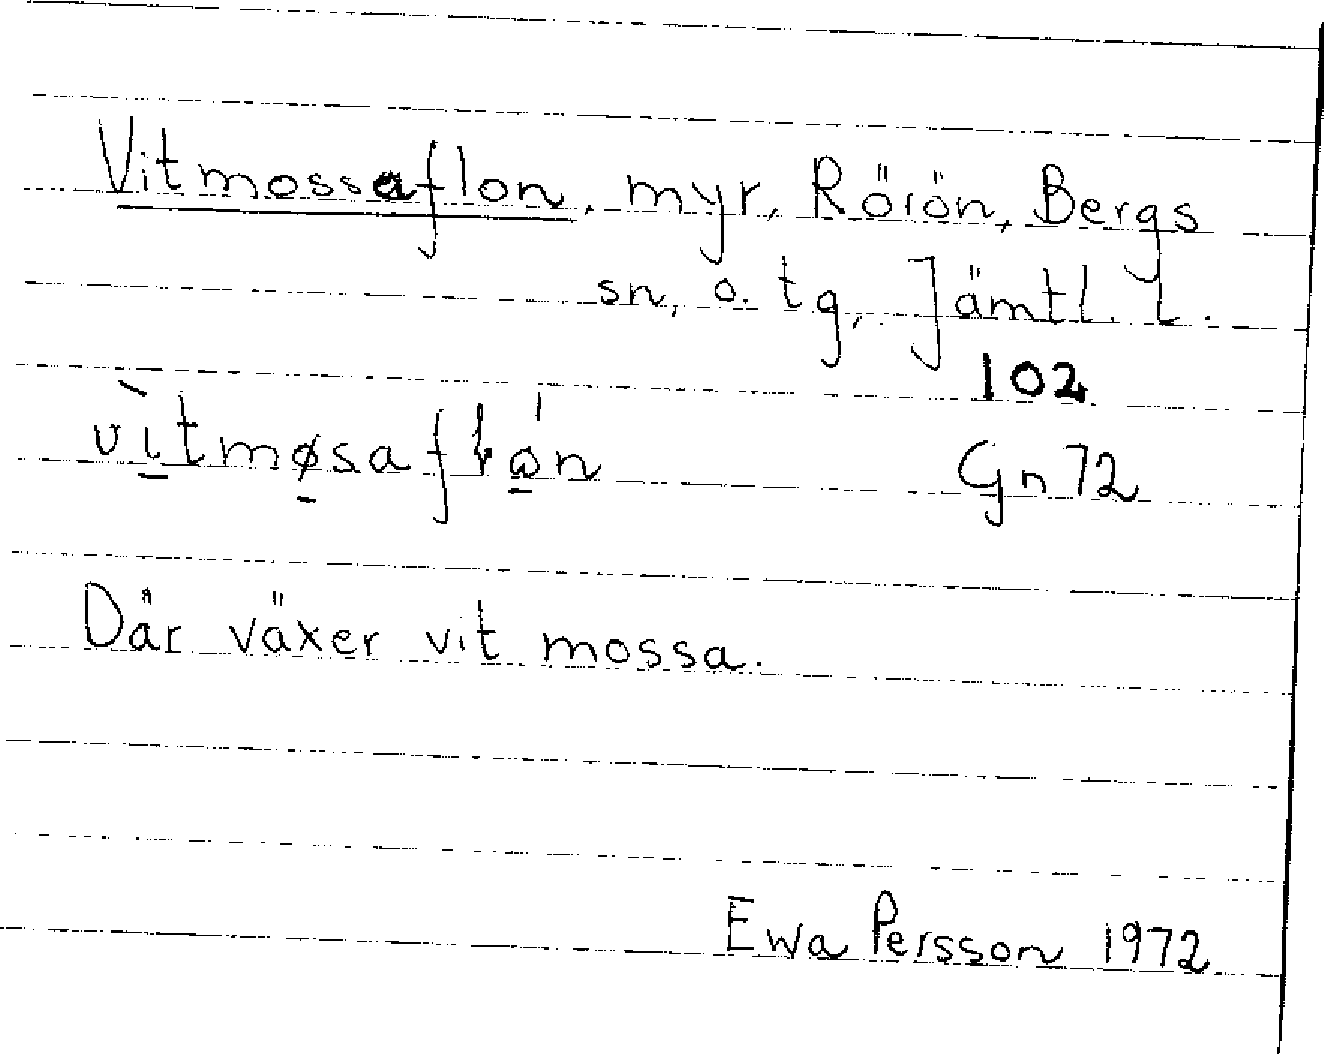 Vitmossaflon, myr, Rörön, Bergs
sn, o. tg, Jämtl. l.
102
Gn 72
Där växer vit mossa.
Ewa Persson 1972